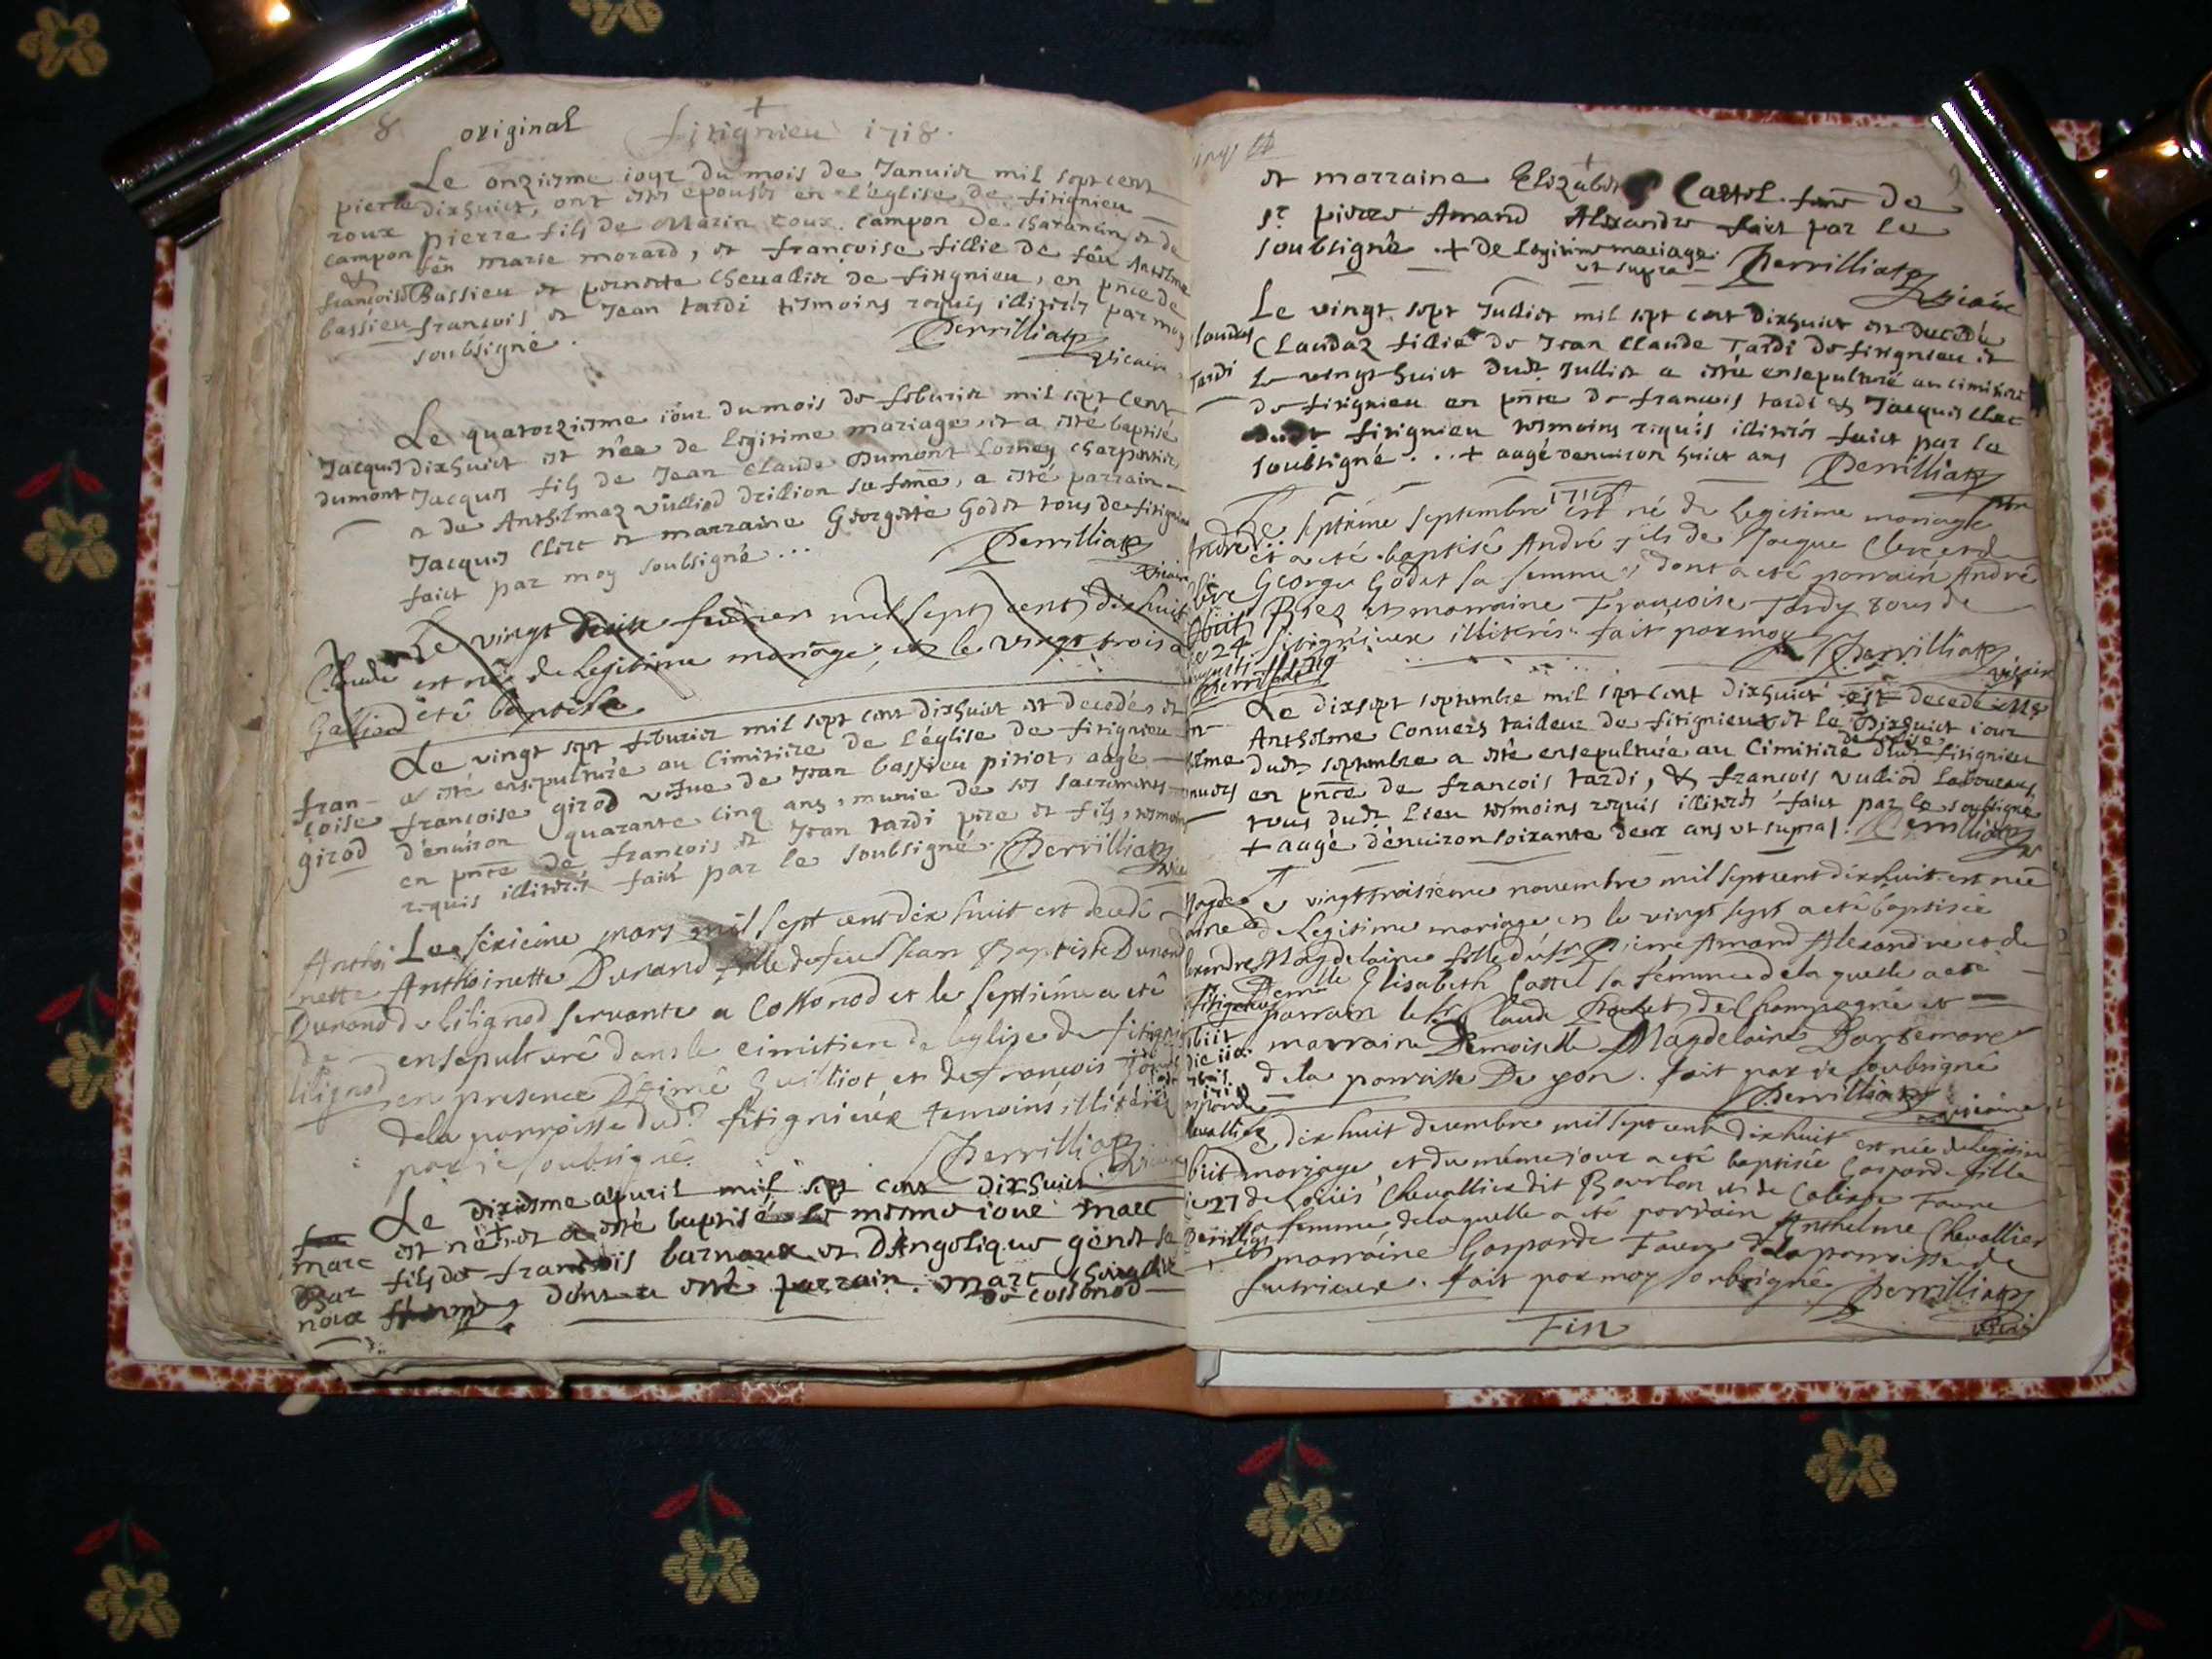 8 original fitignieu 1718.
Le onziesme iour du mois de Januier mil sept cent
pierre dixhuict, ont estes epousés en l'église de fitignieu
roux pierre fils de Marin roux campon de charancin et de
campon feu marie morard, et françoise fillie de feu Antelme
&
françoise Bassieu et pernette cheuallier de fitignieu, en pnce de
bassieu françois et Jean tardi tesmoins requis illiterés par moy
soubsigné. Perrilliat
vicaire
Le quatorziesme iour du mois de feburier mil sept cent
Jacques dixhuict est née de legitime mariage et a esté baptisé
dumont Jacques fils de Jean Claude Dumont charpentier
et de Anthelmaz vulliod sa feme, a esté parrain
Jacques Clerc et marraine Georgette Godet tous de fitignieu
faict par moy soubsigné ... Perrilliat
vicaire
Le vingt feurier mil sept cent dixhuit
Claude est né de legitime mariage, et le vingt trois a
Galliod été baptisé
Le vingt sept feburier mil sept cent dixhuict est decedés et
fran- a esté ensepulturée au cimitiere de l'église de fitignieu
çoise françoise girod vefue de Jean bassieu pitiot, aagé
girod d'enuiron quarante cinq ans, munie de ses sacrements
en pnce de francois et Jean tardi pere et fils, tesmoins
requis illiterés faict par le soubsigné. Perrilliat
Antoi Le sixieme mars mil sept cent dix huit est decedé
nette Anthoinette Durand fille de feu Jean Baptiste Durand
Durand de lilignod servante a Cossonod et le septiéme a eté
de ensepulturé dans le cimitiere de l'eglise de fitignieu
lilignod en presence D'Aimé Guilliot et de francois
de la parroisse dud. fitignieux temoins illiterés
par je soubsigné. Perrilliat
vicaire
Le dixiesme apuril mil sept cent dixhuict
marc est né et a esté baptisé le mesme iour marc
Bar fils de francois barnoux et D'Angelique genet sa
noux femme dont a esté parrain marc cheuallier
de cossonod
et marraine Elizabet Castel. feme de
sr. pierre Amand Alexandre faict par le
soubsigné. + de legitime mariage.
ut supra Perrilliat
vicaire
Le vingt sept Julliet mil sept cent dixhuict est decedée
Claudaz fillie de Jean Claude Tardi de fitignieu et
Tardi le vingt huict dudt Julliet a esté ensepulturé au cimitiere
de fitignieu en pnce de francois tardi & Jacques Clerc
dudt fitignieu tesmoins requis illiterés faict par le
soubsigné ... + aagé denuiron huict ans Perrilliat
septiéme septembre 1718 est né de legitime mariage
André et a eté baptisé André fils de Jacque Clerc et de
George Godet sa femme, dont a eté parrain André
obiit Brez et marraine Françoise Tardy tous de
24 fitignieux illiterés. fait par moy Perrilliat
vicaire
Le dixsept septembre mil sept cent dixhuict est decedé
Anthelme Conuers tailleur de fitignieux et le Dixhuict iour
de l'eglise
dudt septembre a esté ensepulturée au Cimitiere dudt fitignieu
en pnce de francois tardi, & françois vulliod Laboureurs,
tous dudt Lieu tesmoins requis illiterés faict par le soubsigné
+ aagé d'enuiron soixante deux ans ut supra. Perrilliat
Le vingttroisiéme novembre mil sept cent dixhuit est née
de legitime mariage et le vingt sept a eté baptisée
Magdelaine fille du sr Pierre Amand Alexandre et de
Demlle Elisabeth Castel sa femme de laquelle a eté
parrain le sr Claude de Champagne et
marraine Demoiselle Magdelaine
de la parroisse De yon. fait par je soubsigné
Perrilliat
vicaire
dix huit decembre mil sept cent dixhuit est née de legitime
obiit mariage, et du même jour a eté baptisée Gasparde fille
27 de Loüis Chevallier dit Bourbon et de Faure
sa femme de laquelle a eté parrain Anthelme Chevallier
et marraine Gasparde Faure de la parroisse de
sutrieux. fait par moy soubsigné Perrilliat
vicaire
Fin